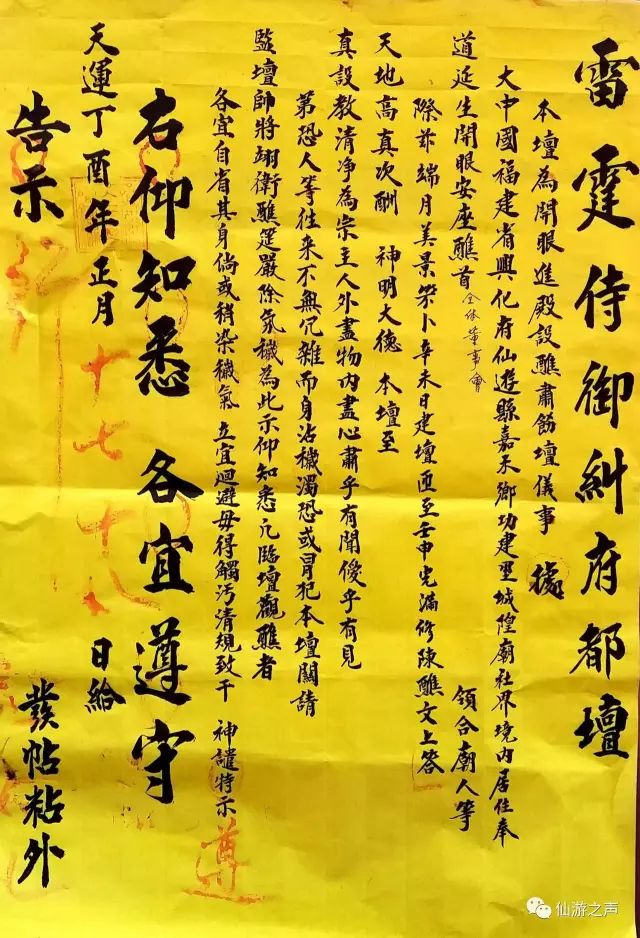 雷霆侍御糾府都壇
本壇為開眼進殿設醮肅筯壇儀事 據
大中國福建省興化府仙遊縣嘉禾鄉功建里城隍廟社界境内居住奉
道延生開眼安座醮首全体董事會 領合廟人等
際茲端月美景筞卜辛未日建壇迊至壬申完滿修陳醮文上答
天地高真次酬 神明大德 本壇至
真設教清净為宗主人外盡物内盡心肅乎有聞僾乎有見
第恐人等往来不無冗雜而身沾穢濁恐或冒犯本壇關請
監壇師將翊衛醮筵嚴除氛穢為此示仰知悉凢臨壇觀醮者
各宜自省其身倘或稍染穢氣 立宜迴避毋得觸汚清規致干 神譴特示
遵
右仰知悉 各宜遵守
天運丁酉年正月 十七 十八 日給
告示 發帖粘外
仙游之声